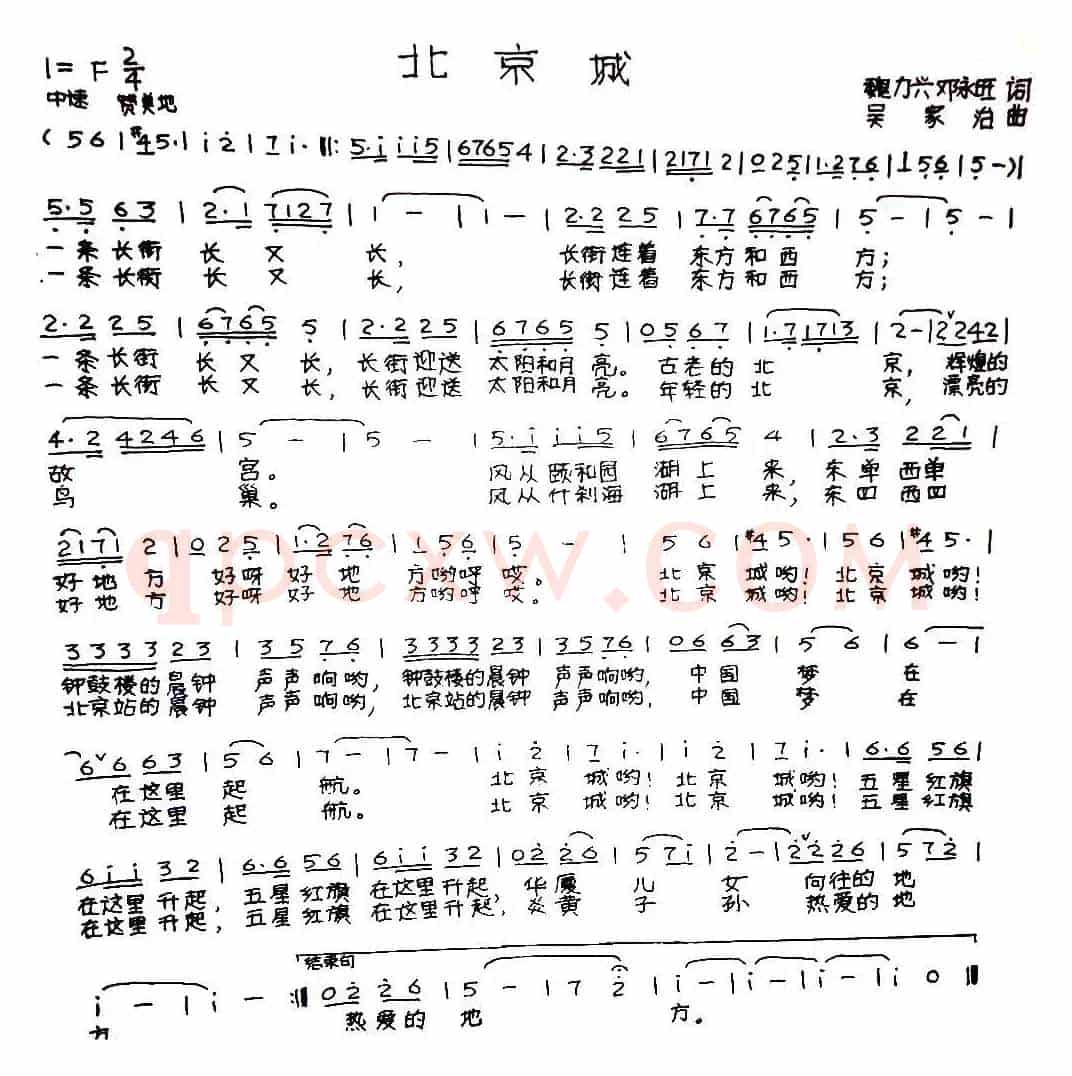 北京城
1=F 2/4
中速 赞美地
魏力兴 邓永旺 词
吴家治 曲
(5 6 | #4 5· | i 2 | 7 i· ‖: 5·i i i 5 | 6765 4 | 2·3 221 | 2171 2 | 0 2 5 | 1·2 7 6 | 1 5 6 | 5 -) |
5·5 6 3 | 2·1 7127 | 1 - | 1 - | 2·2 2 5 | 7·7 6765 | 5 - | 5 - |
一条长街 长 又 长, 长街连着 东方和西 方;
一条长街 长 又 长, 长街连着 东方和西 方;
2·2 2 5 | 6765 5 | 2·2 2 5 | 6765 5 | 0 5 6 7 | 1·7 1713 | 2 - | 2 2 4 2 |
一条长街 长 又 长, 长街迎送 太阳和月 亮。 古老的 北 京, 辉煌的
一条长街 长 又 长, 长街迎送 太阳和月 亮。 年轻的 北 京, 漂亮的
4·2 4246 | 5 - | 5 - | 5·i i i 5 | 6765 4 | 2·3 2 2 1 |
故 宫。 风从颐和园 湖上 来, 东单西单
鸟 巢。 风从什刹海 湖上 来, 东四西四
2171 2 | 0 2 5 | 1·2 7 6 | 1 5 6 | 5 - | 5 6 | #4 5· | 5 6 | #4 5· |
好地方 好呀好 地 方哟呼哎。 北京 城哟! 北京 城哟!
好地方 好呀好 地 方哟呼哎。 北京 城哟! 北京 城哟!
3333 2 3 | 3 5 7 6 | 3333 2 3 | 3 5 7 6 | 0 6 6 3 | 5 6 | 6 - |
钟鼓楼的晨钟 声声响哟, 钟鼓楼的晨钟 声声响哟, 中国 梦 在
北京站的晨钟 声声响哟, 北京站的晨钟 声声响哟, 中国 梦 在
6 6 6 3 | 5 6 | 7 - | 7 - | i 2 | 7 i· | i 2 | 7 i· | 6·6 5 6 |
在这里 起 航。 北京 城哟! 北京 城哟! 五星红旗
在这里 起 航。 北京 城哟! 北京 城哟! 五星红旗
6 i i 3 2 | 6·6 5 6 | 6 i i 3 2 | 0 2 2 6 | 5 7 i | 2 - | 2 2 2 6 | 5 7 2 |
在这里升起, 五星红旗 在这里升起, 华厦 儿 女 向往的 地
在这里升起, 五星红旗 在这里升起, 炎黄 子 孙 热爱的 地
结束句
i - | i - :‖ 0 2 2 6 | 5 - | 7 2 | i - | i - | i - | i 0 ‖
方 热爱的 地 方。
qpcxw.COM